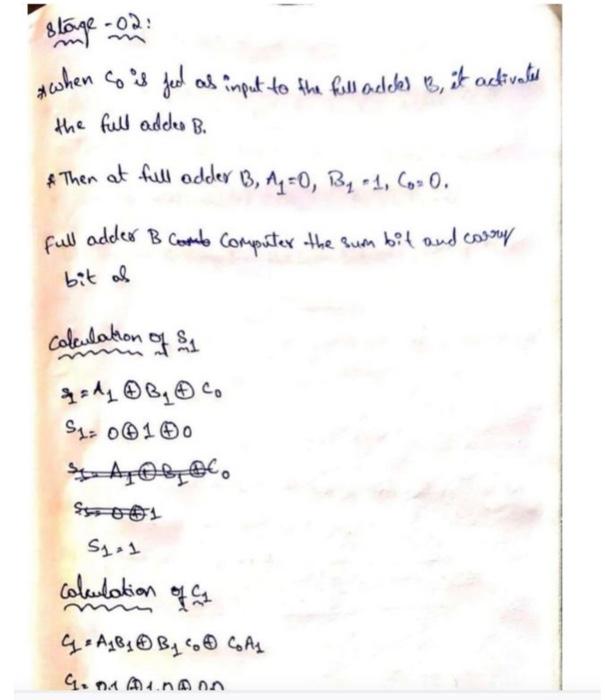 Stage-02:
* when C0 is fed as input to the full adder B, it activates
the full adder B.
* Then at full adder B, A1=0, B1=1, C0=0.
Full adder B Comb Computer the sum bit and carry
bit as
Calculation of S1
S1=A1⊕B1⊕C0
S1=0⊕1⊕0
S1=A1⊕B1⊕C0
S1=0⊕1
S1=1
Calculation of C1
C1=A1B1⊕B1C0⊕C0A1
C1=0.1⊕1.0⊕0.0